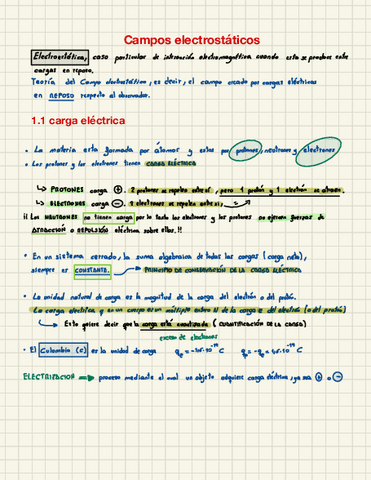 Campos electrostáticos
Electrostática, caso particular de interacción electromagnética cuando esta se produce entre
cargas en reposo.
Teoría del Campo electrostático, es decir, el campo creado por cargas eléctricas
en REPOSO respecto al observador.
1.1 carga eléctrica
• La materia esta formada por átomos y estos por protones, neutrones y electrones
• Los protones y los electrones tienen CARGA ELÉCTRICA
↳ PROTONES carga +. 2 protones se repelen entre si, pero 1 protón y 1 electrón se atraen.
↳ ELECTRONES carga -. 2 electrones se repelen entre si,
!! Los NEUTRONES no tienen carga por lo tanto los electrones y los protones no ejercen fuerzas de
ATRACCIÓN o REPULSIÓN eléctrica sobre ellos.!!
• En un sistema cerrado, la suma algebraica de todas las cargas (carga neta),
siempre es CONSTANTE. PRINCIPIO DE CONSERVACIÓN DE LA CARGA ELÉCTRICA
• La unidad natural de carga es la magnitud de la carga del electrón o del protón.
La carga eléctrica q en un cuerpo es un múltiplo entero N de la carga e del electrón (o del protón)
↳ Esto quiere decir que la carga está cuantizada (CUANTIFICACIÓN DE LA CARGA)
exceso de electrones
• El Culombio (C) es la unidad de carga
ELECTRIZACION → proceso mediante el cual un objeto adquiere carga eléctrica, ya sea + o -